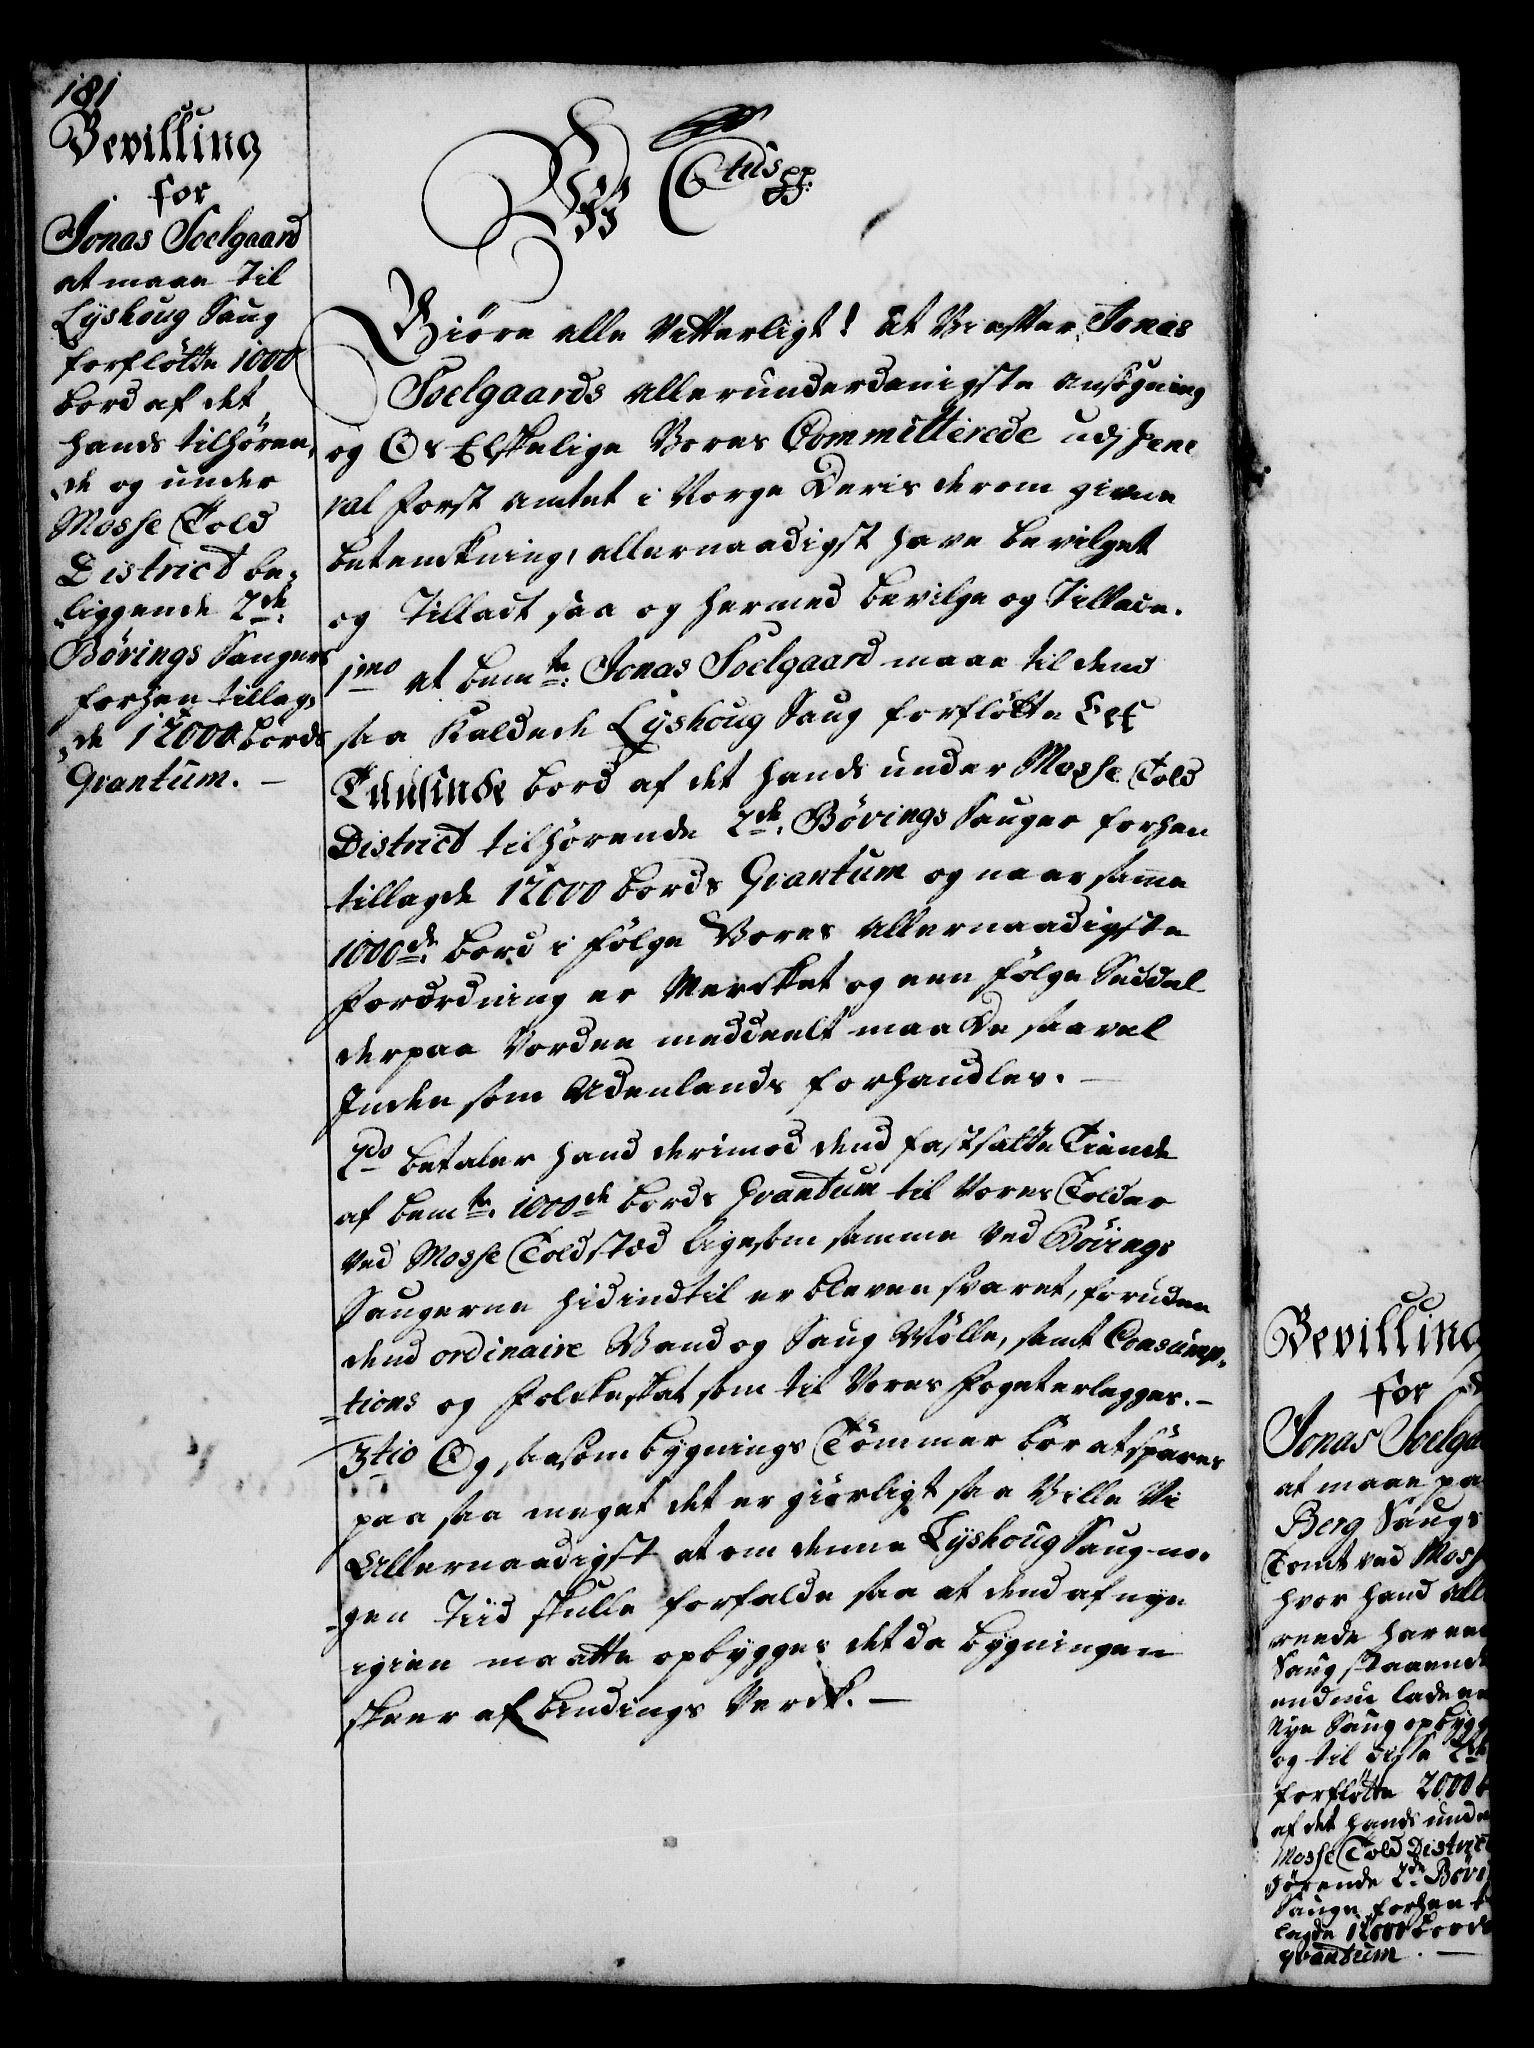 181
Bevilling
for
Jonas Soelgaard
at maae til
Lyshoug Saug
forfløtte 1000
bord af det
hands tilhøren,
de og under
Mosse Told
District be=
liggende 2de
Børings Sauger
forhen tillag=
de 12000 bords
Qvantum. –
Wy Ctus pp.
Giøre alle Vitterligt! at Vi efter Jonas
Soelgaards allerunderdanigste ansøgning
og Os Elskelige Vores Committerede udj Gene
ral forst amtet i Norge Deris derom givne
betenckning, allernaadigst have bevilget
og Tilladt saa og hermed bevilge og Tillade.
1mo at bemte Jonas Soelgaard maae til dend
saa Kaldede Lyshoug Saug forfløtte Eet
Tuusinde bord af det hands under Mosse Told
District tilhørende 2de Børings Sauger forhen
tillagde 12000 bords Qvantum og naar samme
1000de bord i følge Vores allernaadigste
forordning er Mercket og een følge Seddel
derpaa Vorden meddeelt maa De saavel
Inden som Udenlands forhandles. –
2do betaler hand derimod dend fastsatte Tiende
af bemte 1000de bords Qvantum til Vores Tolder
ved Mosse Toldsted ligesom samme ved Børings
Saugerne hidindtil er bleven svaret, foruden
dend ordinaire Vand og Saug Mølle, samt Consump=
=tions og Folckeskat som til Vores Foget erlegges. –
3tio Og saasom bygnings Tømmer bør at spares
paa saa meget det er giørligt saa Ville Vi
Allernaadigst at om denne Lyshoug Saug no=
=gen Tiid skulle forfalde saa at dend af nye
igien maatte opbygges det da bygningen
skeer af bindings Verck. –
Bevilling
for
Jonas Soelga
at maae pa
Berg Saugs
Tomt ved Moss
hvor hand all
reede har een
Saug staaende
endnu lade een
Nye Saug opbygg
og til disse 2de
forfløtte 2000 b
af det hands unde
Mosse Told District
hørende 2de Børi
Sauge forhen t
lagde 12000 bords
qvantum. –